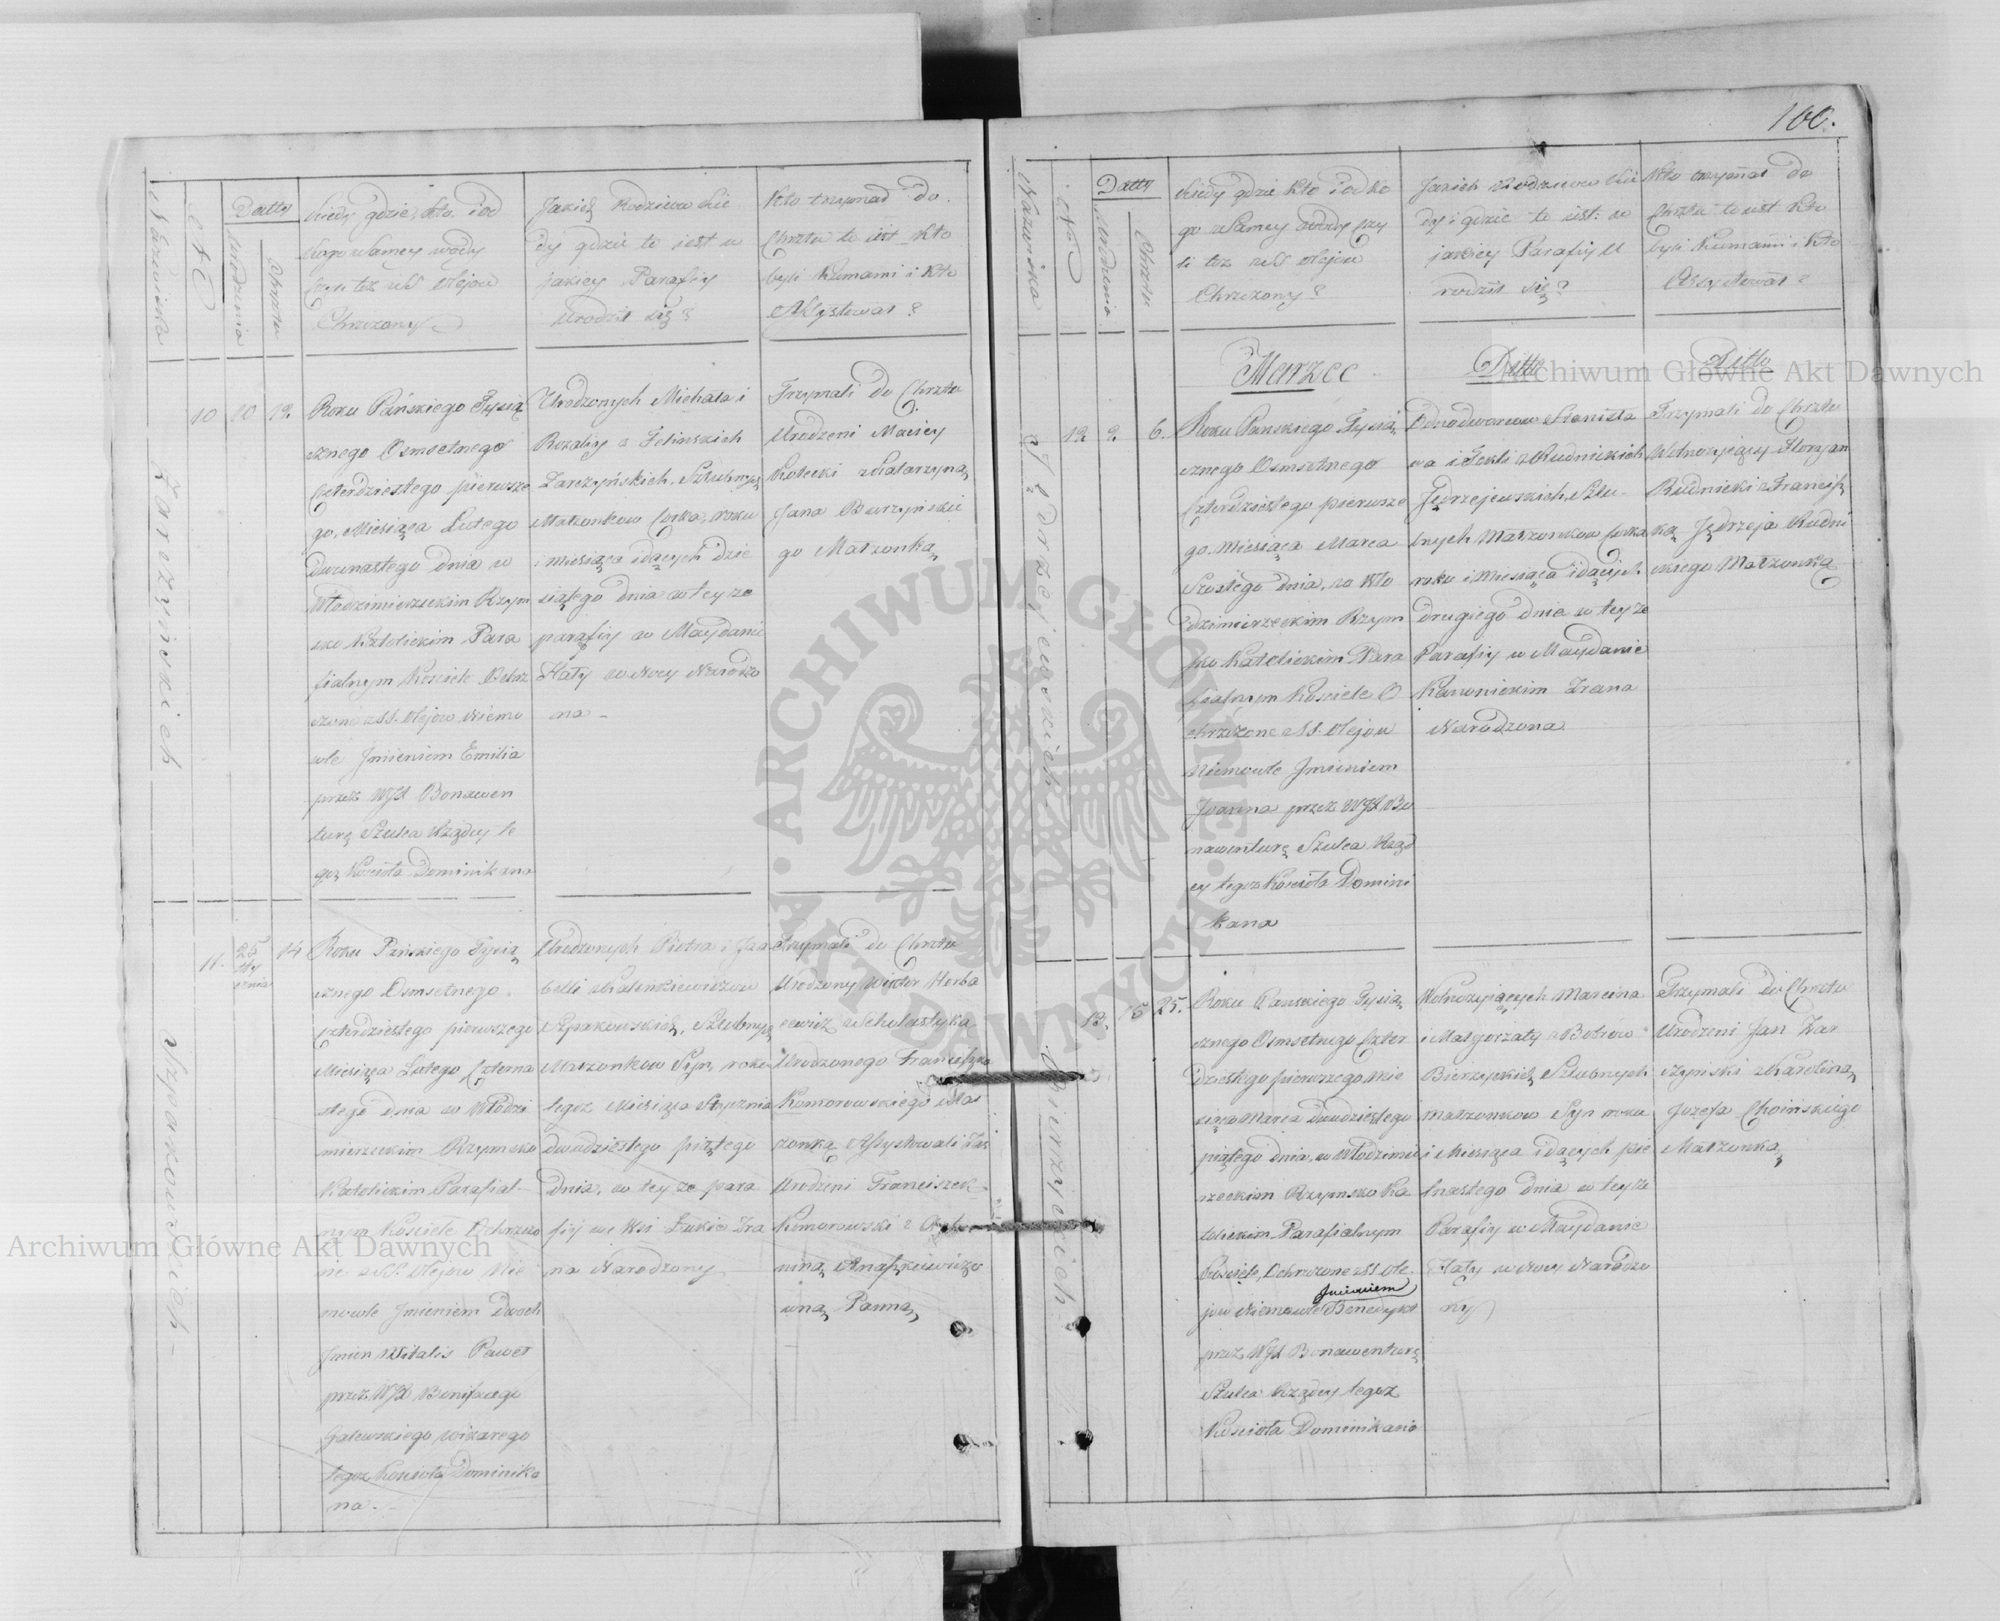 100.
Nazwiska
No
Datty
Urodzenia
Chrztu
Kiedy gdzie, kto, i od
kogo z samey wody
czyli też z SS Olejow
Chrzczony
Jakich Rodziców kie
dy gdzie to iest w
jakiey Parafiy
Urodził się?
Kto trzymał do
Chrztu to iest kto
byli Kumami i kto
Assystował?
Zarczyńskich
10 10 12
Roku Pańskiego Tysią
cznego Osmsetnego
Czterdziestego pierwsze
go, Miesiąca Lutego
Dwunastego dnia w
Włodzimierzskim Rzym
sko Katolickim Para
fialnym Kosciele Ochrz
czone z SS. Olejow Niemo
wle Jmieniem Emilia
przez WJX Bonawen
turę Szulca Rządcy te
goż Kościoła Dominikana
Urodzonych Michała i
Rozaliy z Zelinskich
Zarczyńskich, Szlubnych
Małżonkow Corka, roku
i miesiąca idących dzie
siątego dnia w teyze
parafiy w Maydanie
Haty w Nocy Narodzo
na
Trzymali do Chrztu
Urodzeni Maciey
Kotecki z Katarzyną
Jana Burzyńskie
go Małżonką
Szpakowskich
11. 25 Sty cznia 14
Roku Pańskiego Tysią
cznego Osmsetnego
Czterdziestego pierwszego
Miesiąca Lutego, Czterna
stego dnia w Włodzi
mierzskim Rzymsko
Katolickim Parafial
nym Kosciele Ochrzczo
ne z SS. Olejow Nie
mowle Jmieniem Dwoch
Jmion Witalis Paweł
przez WJX Bonifacego
Galewskiego wikarego
tegoz Kosciola Dominika
na.
Urodzonych Piotra i Jza
belli
Szpakowskich, Szlubnych
Małżonkow Syn, roku
tegoz Miesiąca Stycznia
dwudziestego piątego
Dnia, w tey ze para
fiy we Wsi Łukie Zra
na Narodzony
Trzymali do Chrztu
Urodzony Wiktor Herba
czewicz z Scholastyką
Urodzonego Franciszka
Komorowskiego Mał
zonką Assystowali Zas
Urodzeni Franciszek
Komorowski z
wną Panną
Nazwiska
No
Datty
Urodzenia
Chrztu
Kiedy gdzie kto i od ko
go z samey wody czy
li toz z SS Olejow
Chrzczony?
Jakich Rodzicow kie
dy i gdzie to iest: w
jakiey Parafiy U
rodził się?
Kto trzymał do
Chrztu to iest kto
byli Kumami i kto
Assystował?
Marzec
Ditto
Ditto
Jędrzejewskich
12 2. 6.
Roku Panskiego Tysią
cznego Osmsetnego
Czterdziestego pierwsze
go. Miesiąca Marca
Szostego dnia, w Wło
dzimierzskim Rzym
sko Katolickim Para
fialnym Kosciele O
chrzczone z SS. Olejow
Niemowle Jmieniem
Joanna przez WJX Bo
nawenturę Szulca Rząd
cy tegoz Kosciola Domini
kana
Odnodworcow Stanisla
wa i Tekli z Rudnickich
Jędrzejewskich, Szlu
bnych Małżonkow Corka
roku i Miesiąca idących
drugiego dnia w teyze
Parafiy w Maydanie
Kanonickim Zrana
Narodzona
Trzymali do Chrztu
Wolnozyiący Floryan
Rudnicki z Francisz
ką Jędrzeja Rudni
ckiego Małżonką
Bierzyckich
13. 15 25.
Roku Panskiego Tysią
cznego Osmsetnego Czter
dziestego pierwszego Mie
siąca Marca Dwudziestego
piątego dnia, w Włodzimie
rzskim Rzymsko Ka
tolickim Parafialnym
Kosciele, Ochrzczone z SS Ole
Jmieniem
jow Niemowle Benedykt
przez WJX Bonawenturę
Szulca Rządcy tegoz
Kosciola Dominikana
Wolnozyiących Marcina
i Małgorzaty z
Bierzyckich Szlubnych
Małżonkow Syn roku
i Miesiąca idących pie
tnastego dnia w teyze
Parafiy w Maydanie
Haty w Nocy Narodzo
ny
Trzymali do Chrztu
Urodzeni Jan Zar
czyński z Karoliną
Jozefa Choińskiego
Małżonką
Archiwum Główne Akt Dawnych
Archiwum Główne Akt Dawnych
ARCHIWUM GŁÓWNE AKT DAWNYCH